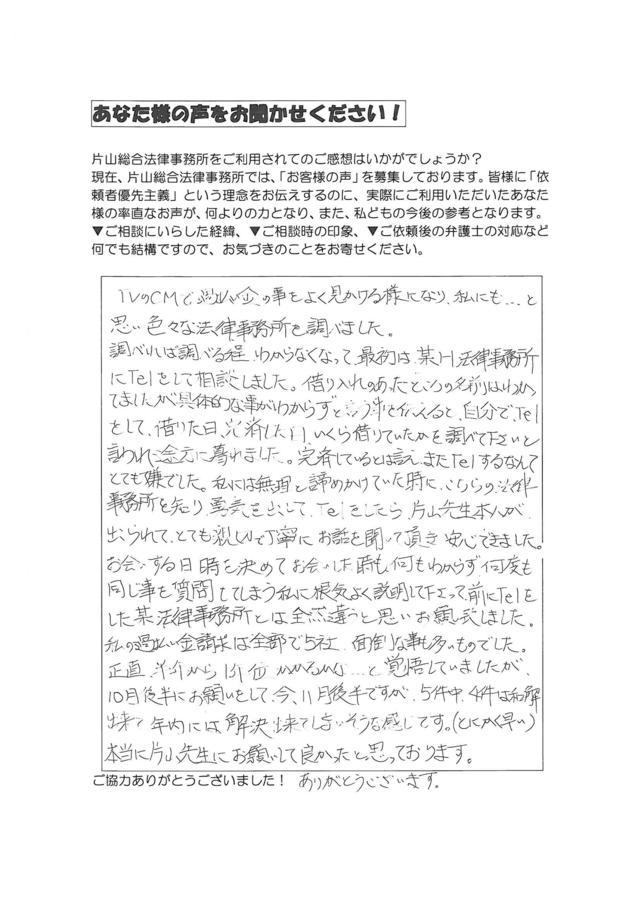 あなた様の声をお聞かせください！
片山総合法律事務所をご利用されてのご感想はいかがでしょうか？
現在、片山総合法律事務所では、「お客様の声」を募集しております。皆様に「依
頼者優先主義」という理念をお伝えするのに、実際にご利用いただいたあなた
様の率直なお声が、何よりの力となり、また、私どもの今後の参考となります。
▼ご相談にいらした経緯、▼ご相談時の印象、▼ご依頼後の弁護士の対応など
何でも結構ですので、お気づきのことをお寄せください。
TVのCMで過払い金の事をよく見かける様になり、私にも…と
思い色々な法律事務所を調べました。
調べれば調べる程わからなくなって最初は某H法律事務所
にTelをして相談しました。借り入れのあったところの名前はわかっ
てましたが具体的な事がわからずと言う事を伝えると、自分でTel
をして、借りた日、完済した日、いくら借りていたかを調べて下さいと
言われ途方に暮れました。完済しているとは言え、またTelするなんて
とても嫌でした。私には無理と諦めかけていた時に、こちらの法律
事務所を知り勇気を出して、Telをしたら、片山先生本人が
出られて、とても親しんで丁寧にお話を聞いて頂き安心できました。
お会いする日時を決めてお会いした時も何もわからず何度も
同じ事を質問をしてしまう私に根気よく説明して下さって前にTelを
した某法律事務所とは全然違うと思いお願いしました。
私の過払い金請求は全部で5社、面倒な事も多いものでした。
正直、半年から1年位かかるかな…と覚悟していましたが、
10月後半にお願いをして、今、11月後半ですが、5件中、4件は和解
出来て年内には解決出来てしまいそうな感じです。(とにかく早い)
本当に片山先生にお願いして良かったと思っております。
ご協力ありがとうございました！ ありがとうございます。